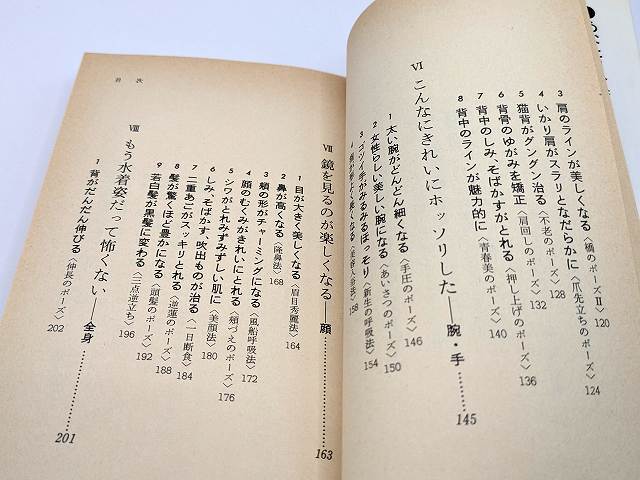 3 肩のラインが美しくなる〈橋のポーズⅡ〉 120
4 いかり肩がスラリとなだらかに〈爪先立ちのポーズ〉 124
5 猫背がグングン治る〈不老のポーズ〉 128
6 背骨のゆがみを矯正〈肩回しのポーズ〉 132
7 背中のしみ、そばかすがとれる〈押し上げのポーズ〉 136
8 背中のラインが魅力的に〈青春美のポーズ〉 140
Ⅵ こんなにきれいにホッソリした——腕・手 145
1 太い腕がどんどん細くなる〈手圧のポーズ〉 146
2 女性らしい美しい腕になる〈あいさつのポーズ〉 150
3 ゴツイ手がみるみるほっそり〈新生の呼吸法〉 154
158
目次
Ⅶ 鏡を見るのが楽しくなる——顔 163
1 目が大きく美しくなる〈眉目秀麗法〉 164
2 鼻が高くなる〈隆鼻法〉 168
3 頬の形がチャーミングになる〈風船呼吸法〉 172
4 顔のむくみがきれいにとれる〈頬づえのポーズ〉 176
5 シワがとれみずみずしい肌に〈美顔法〉 180
6 しみ、そばかす、吹出ものが治る〈一日断食〉 184
7 二重あごがスッキリとれる〈逆蓮のポーズ〉 188
8 髪が驚くほど豊かになる〈頭髪のポーズ〉 192
9 若白髪が黒髪に変わる〈三点逆立ち〉 196
Ⅷ もう水着姿だって怖くない——全身 201
1 背がだんだん伸びる〈伸長のポーズ〉 202